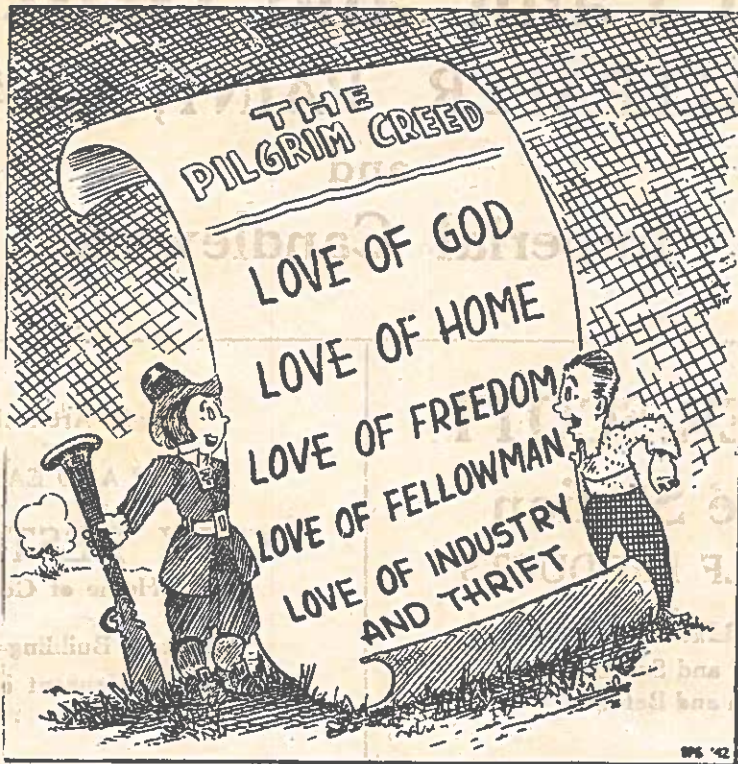 THE
PILGRIM CREED
LOVE OF GOD
LOVE OF HOME
LOVE OF FREEDOM
LOVE OF FELLOWMAN
LOVE OF INDUSTRY
AND THRIFT
'42